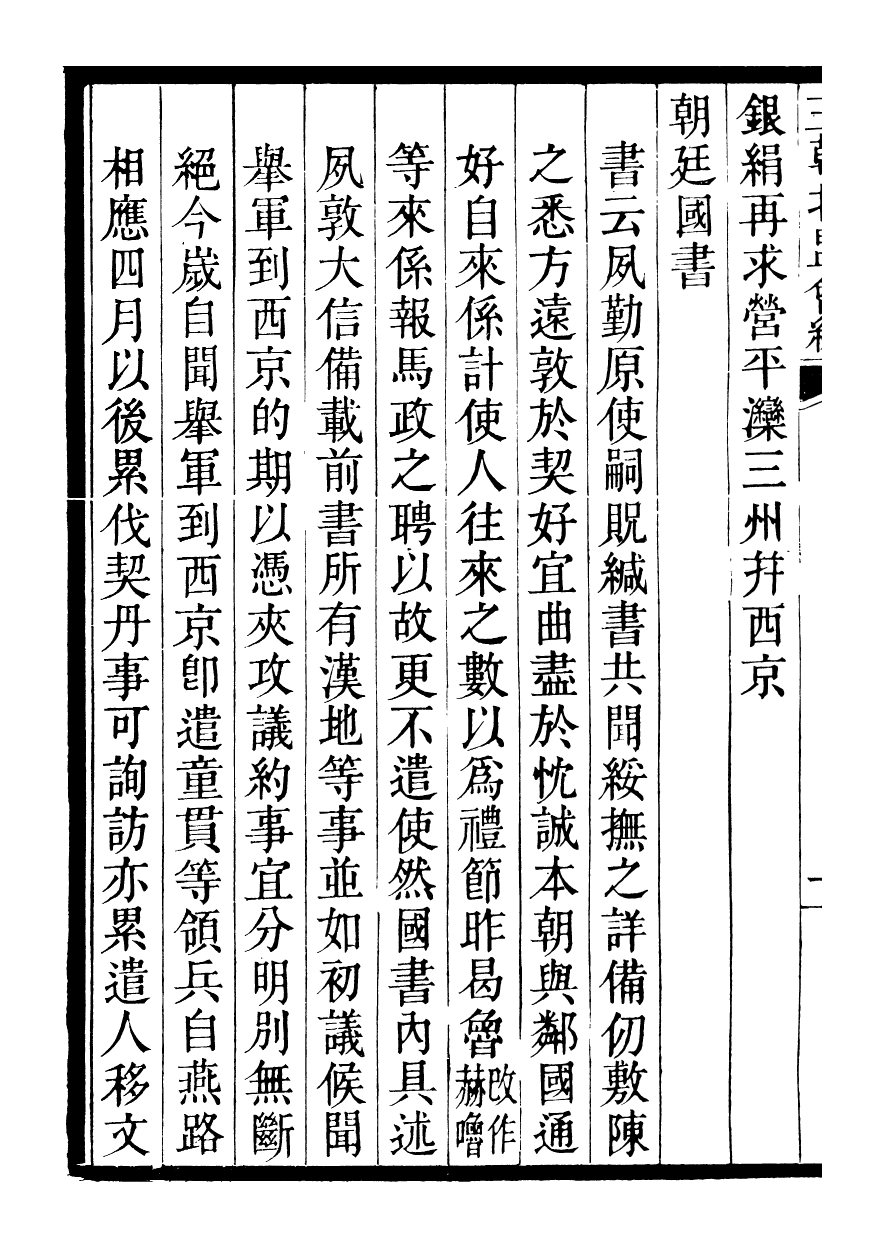 銀絹再求營平灤三州幷西京
朝廷國書
書云夙勤原使嗣貺緘書共聞綏撫之詳備仞敷陳
之悉方遠敦於契好宜曲盡於忱誠本朝與鄰國通
好自來係計使人往來之數以爲禮節昨曷魯改作赫嚕
等來係報馬政之聘以故更不遣使然國書內具述
夙敦大信備載前書所有漢地等事並如初議候聞
舉軍到西京的期以憑夾攻議約事宜分明別無斷
絕今歲自聞舉軍到西京卽遣童貫等領兵自燕路
相應四月以後累伐契丹事可詢訪亦累遣人移文